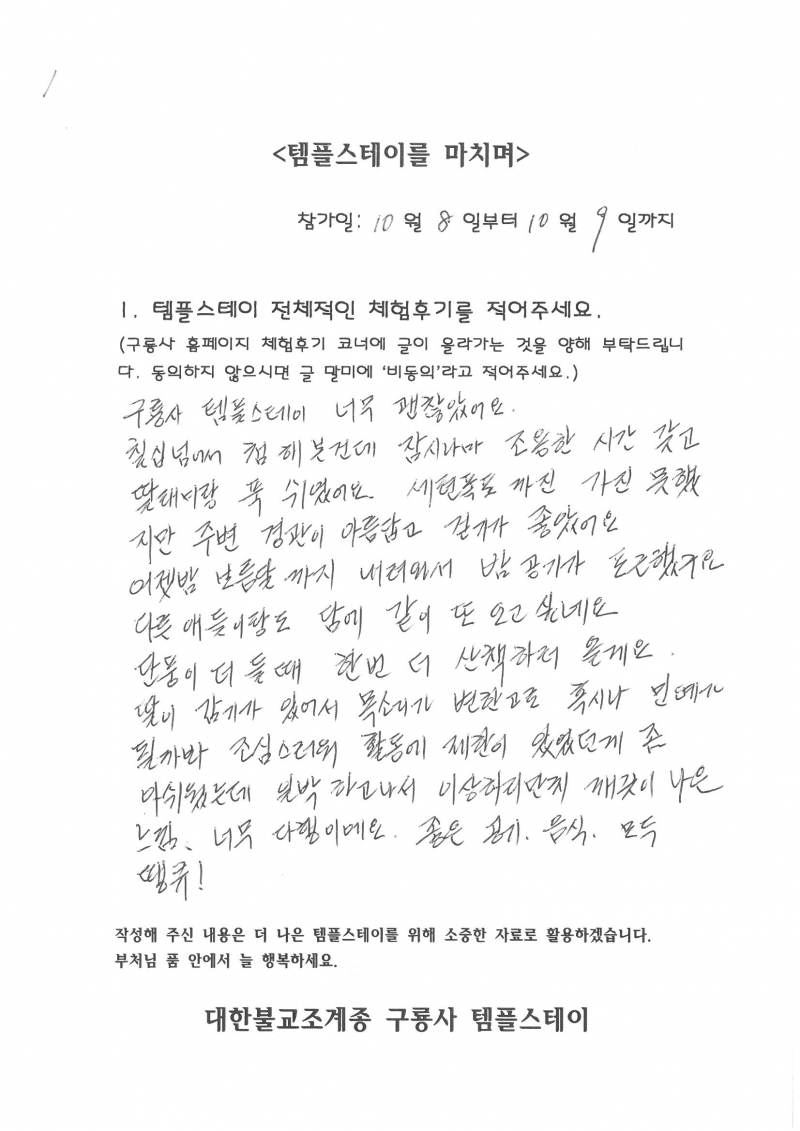 <템플스테이를 마치며>
참가일: 10 월 8 일부터 10 월 9 일까지
1. 템플스테이 전체적인 체험후기를 적어주세요.
(구룡사 홈페이지 체험후기 코너에 글이 올라가는 것을 양해 부탁드립니
다. 동의하지 않으시면 글 말미에 '비동의'라고 적어주세요.)
구룡사 템플스테이 너무 괜찮았어요.
칠십넘어서 첨 해본건데 잠시나마 조용한 시간 갖고
딸래미랑 푹 쉬었어요. 세렴폭포 까진 가진 못했
지만 주변 경관이 아름답고 걷기가 좋았어요
어젯밤 보름달 까지 내려와서 밤 공기가 포근했구요
다른 애들이랑도 담에 같이 또 오고 싶네요
단풍이 더 들때 한번 더 산책하러 올게요.
딸이 감기가 있어서 목소리가 변한고로 혹시나 민폐가
될까봐 조심스러워 활동에 제한이 있었던게 좀
아쉬웠는데 일박 하고나서 이상하리만치 깨끗이 나은
느낌. 너무 다행이예요. 좋은 공기. 음식. 모두
땡큐!
작성해 주신 내용은 더 나은 템플스테이를 위해 소중한 자료로 활용하겠습니다.
부처님 품 안에서 늘 행복하세요.
대한불교조계종 구룡사 템플스테이